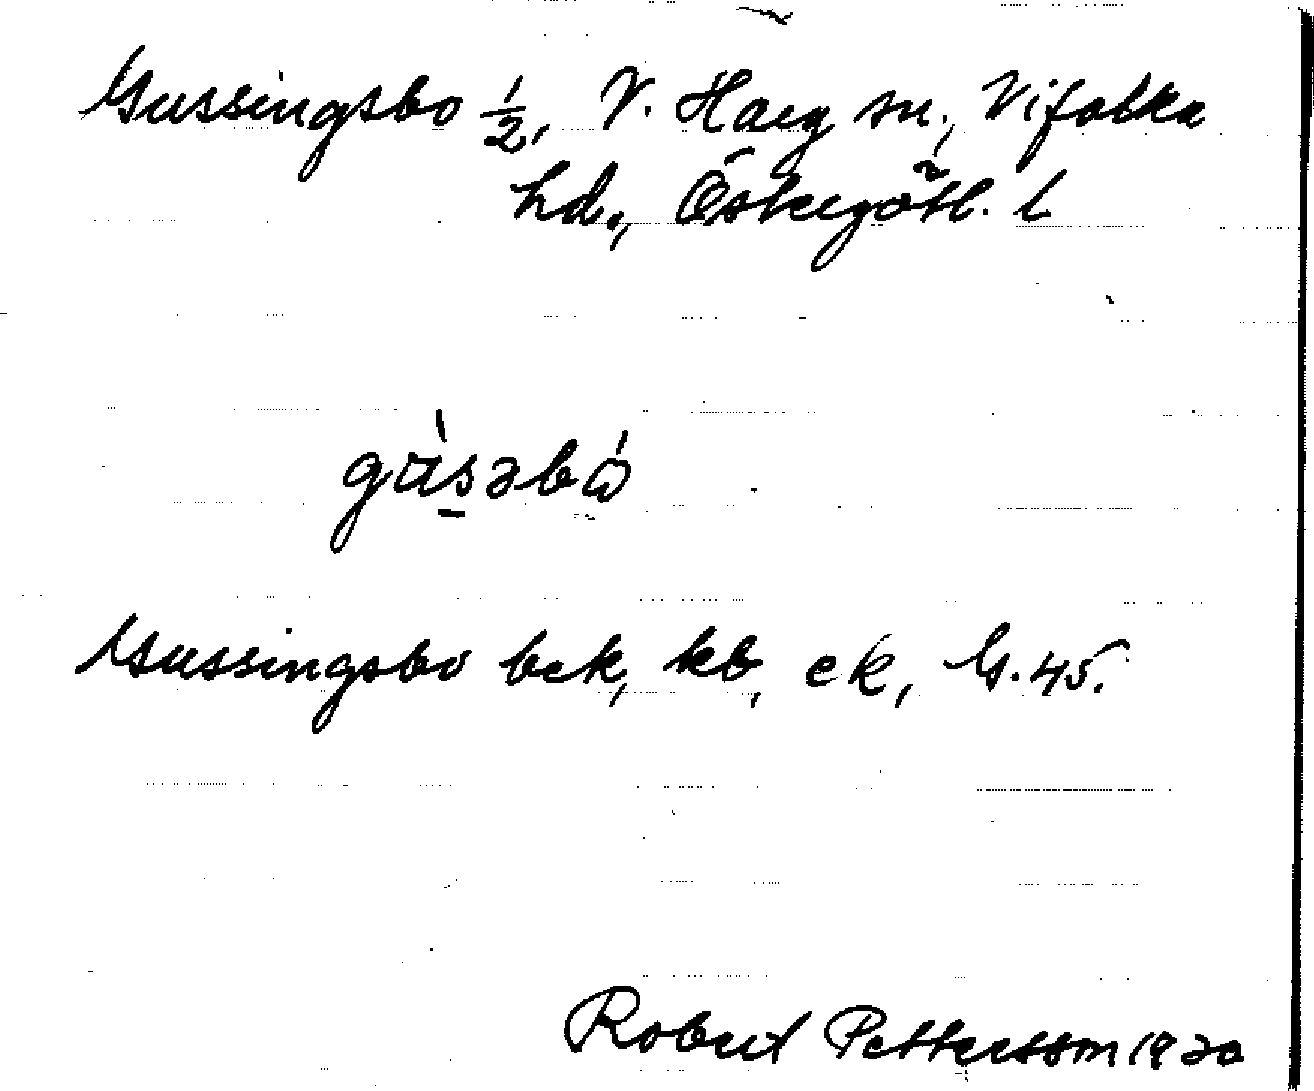 Gussingsbo 1/2, V. Harg sn., Vifolka
hd., Östergötl. l
gùsəbó
Gussingsbo bek, kb, ek, G. 45.
Robert Pettersson 1920